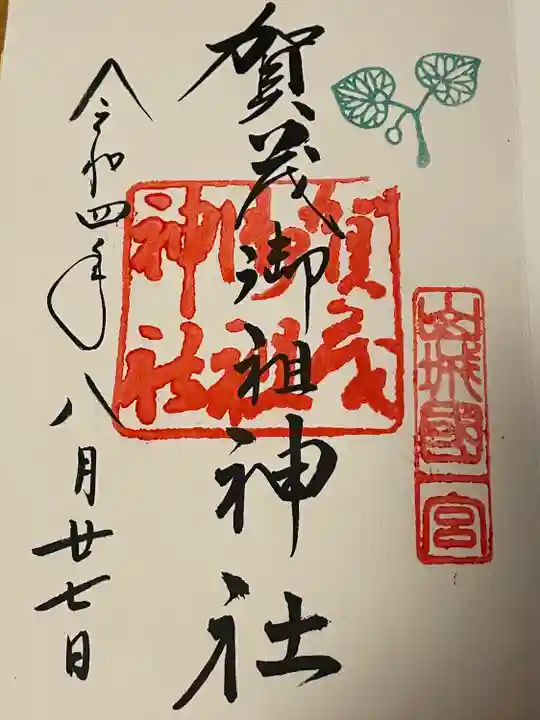 山城國一宮
賀茂御祖神社
賀茂御祖神社
令和四年八月廿七日